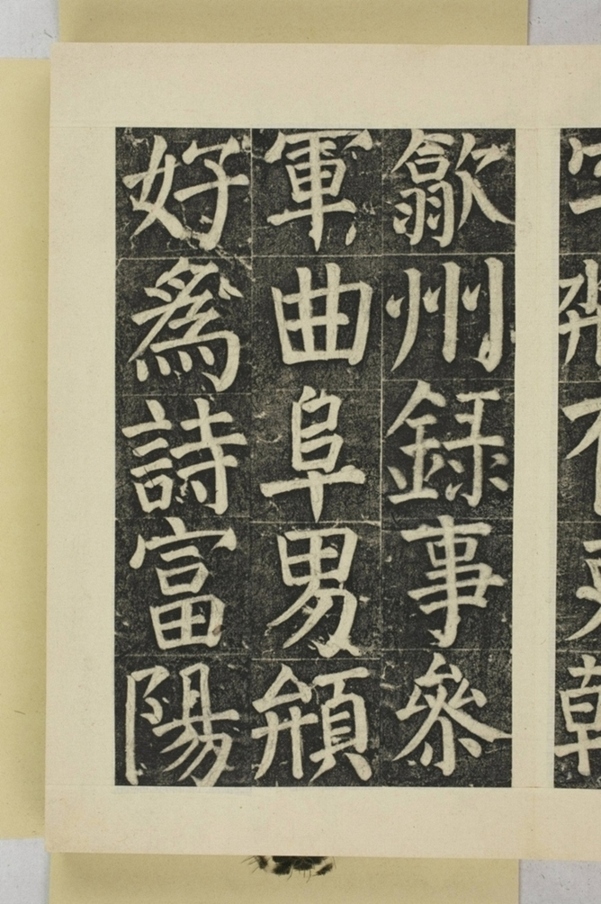 歙州録事參
軍曲阜男
好爲詩富陽